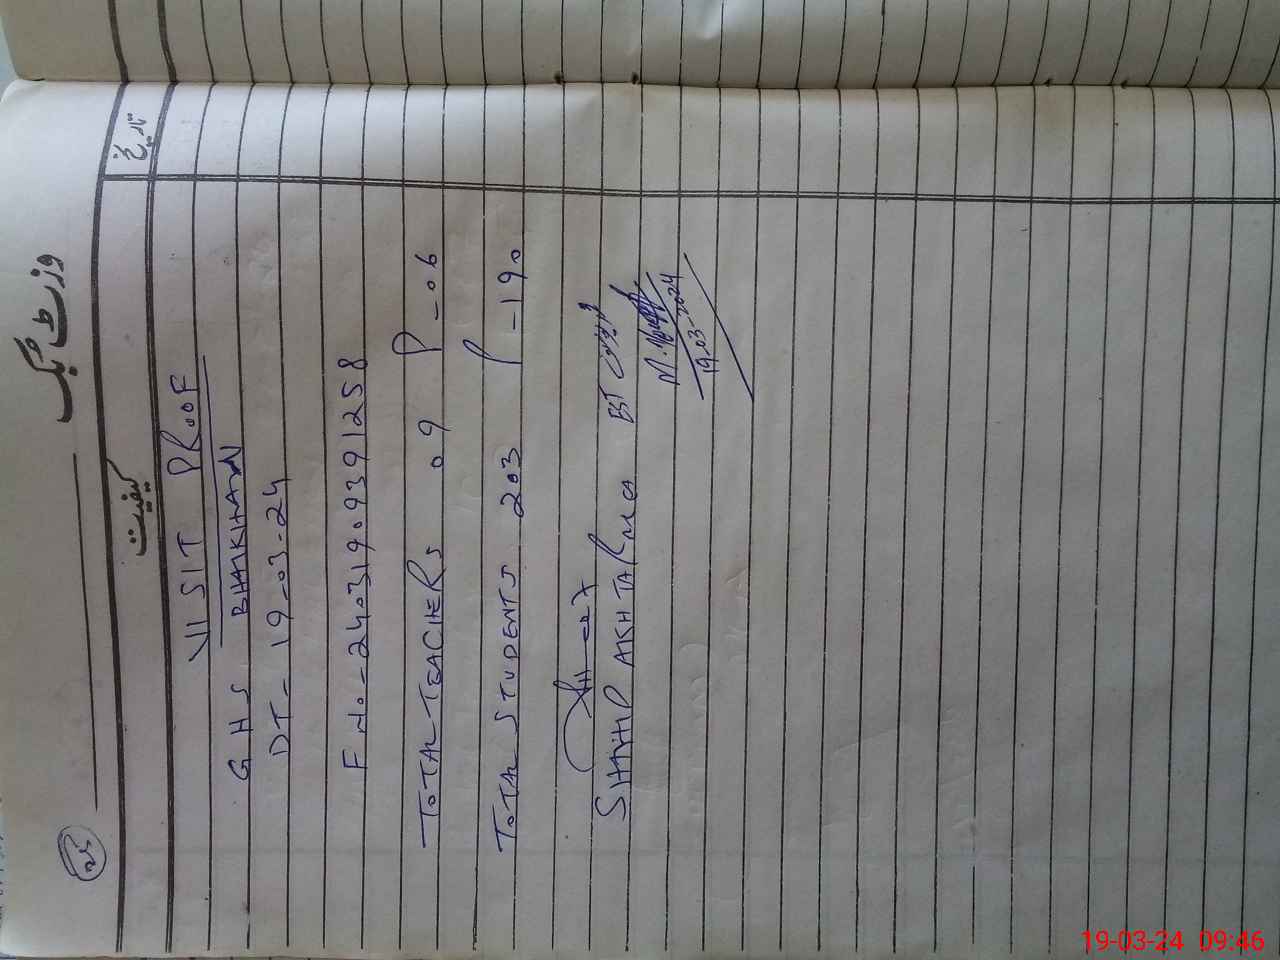 وزٹ بک
تاریخ
کیفیت
VISIT PROOF
GHS BHAIKHAN
DT- 19-03-24
F No- 24031909391258
TOTAL TEACHERS 09 P-06
TOTAL STUDENTS 203 P-190
SHAHID AKHTAR MCA EST
19-03-2024
19-03-24 09:46